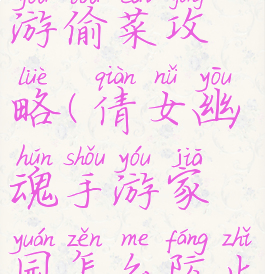 yóu tōu cài gōng
游偷菜攻
lüè qiàn nǚ yōu
略(倩女幽
hún shǒu yóu jiā
魂手游家
yuán zěn me fáng zhǐ
园怎么防止